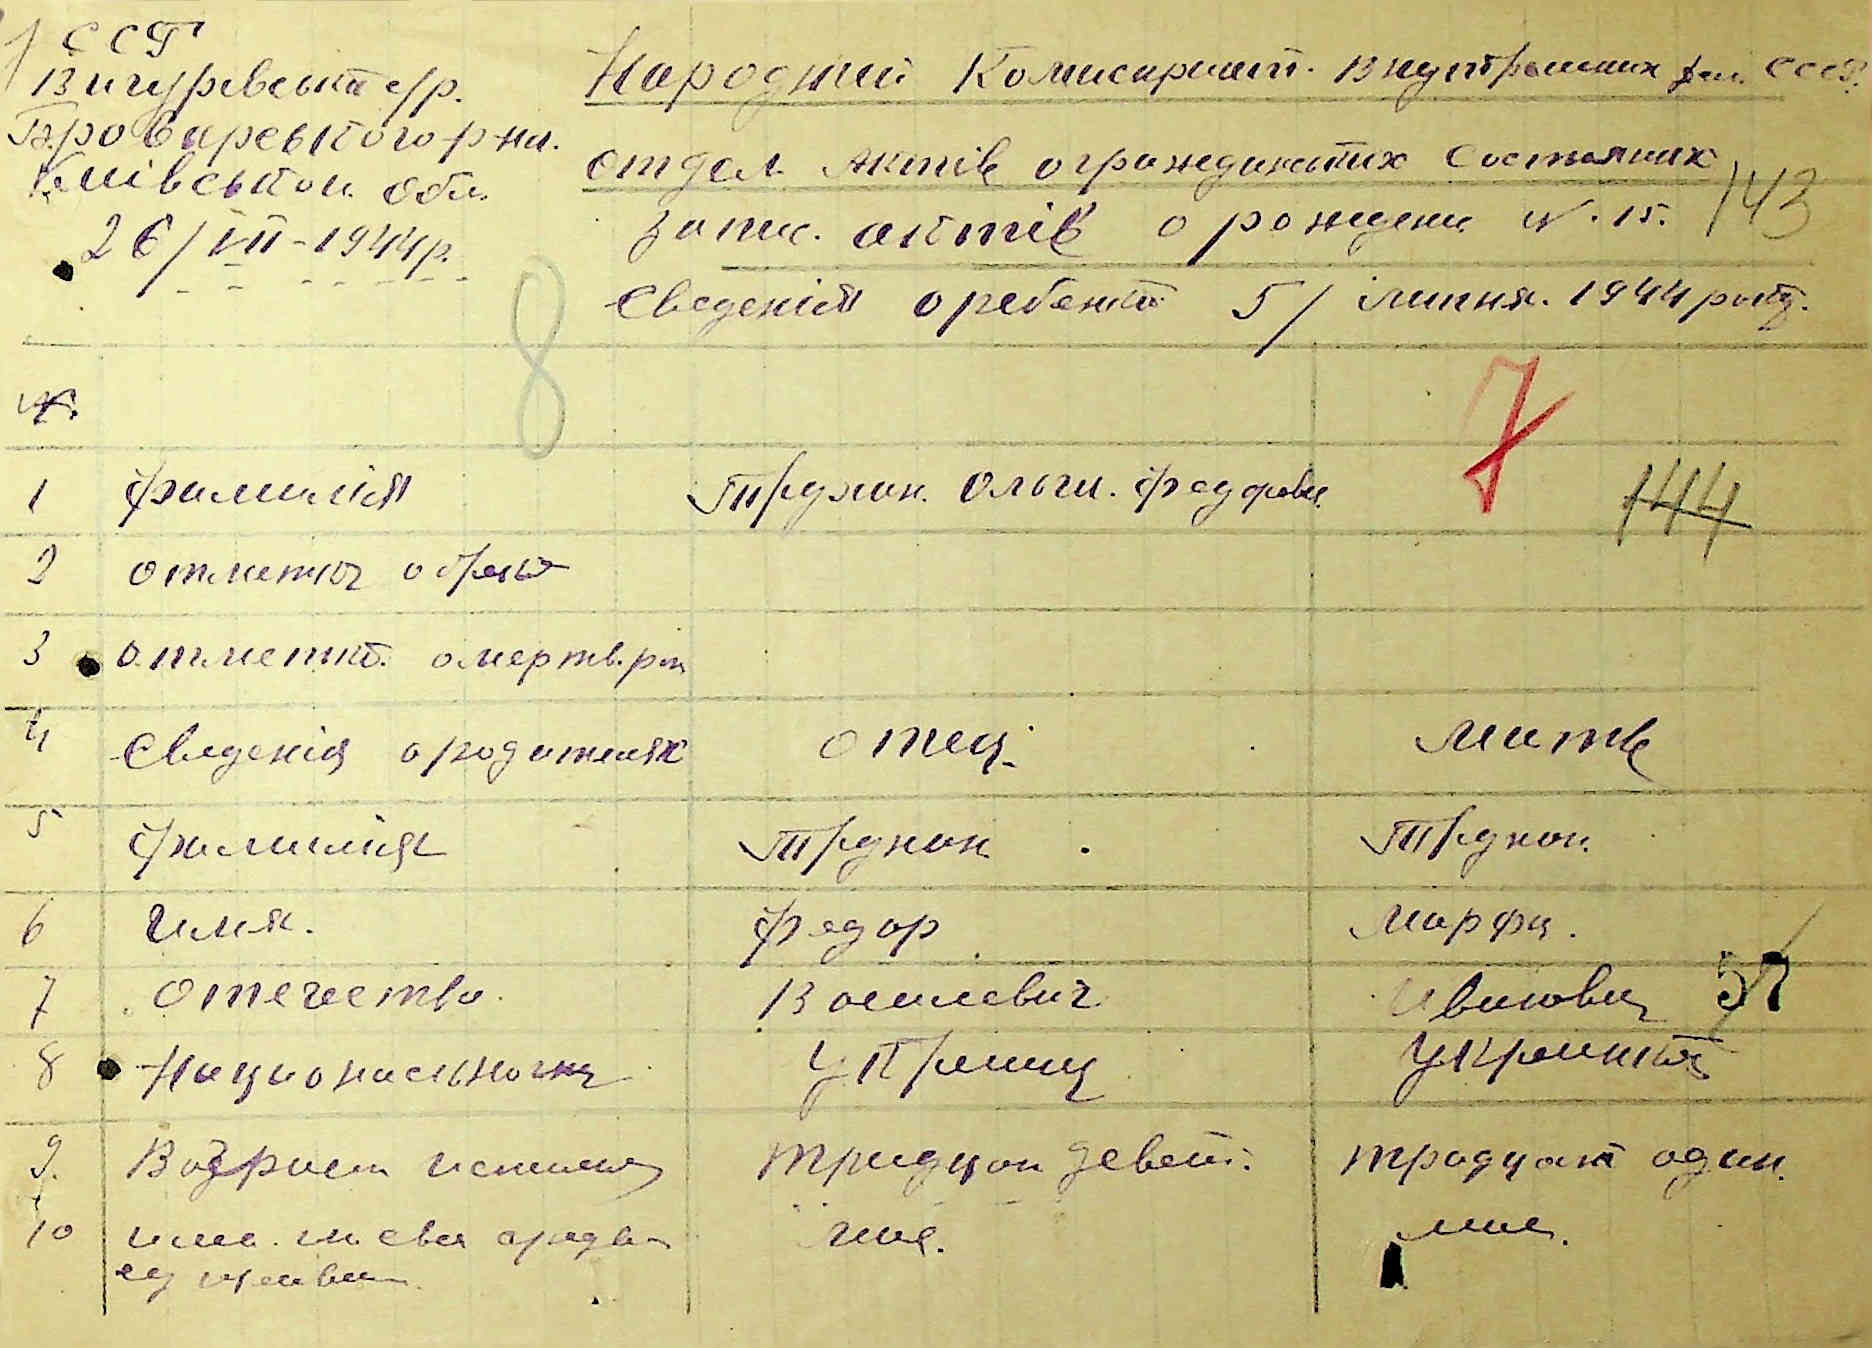 ССР
Вигурівська с/р.
Броварського р-на.
Київської обл.
26/VII-1944р.
Народний Комисариат. Внутрених дел. СССР.
отдел Актів о гражданських состояних
143
запис. актів о рождени №. 15.
Сведенія о ребенка 5/ липня. 1944 року.
8
7
№.
1 фамилія Трухан. Ольга. Федоровна
144
2 отметка о
3 отметка. о мертв.
4 Сведенія о родителях отец. мать
5 фамилия Трухан Трухан.
6 имя. Федор Марфа.
7 отечество. Василевич Ивановна
57
8 Национальность Украинец Украинка
9. Возраст исполн. тридцат девят. тридцат один.
10